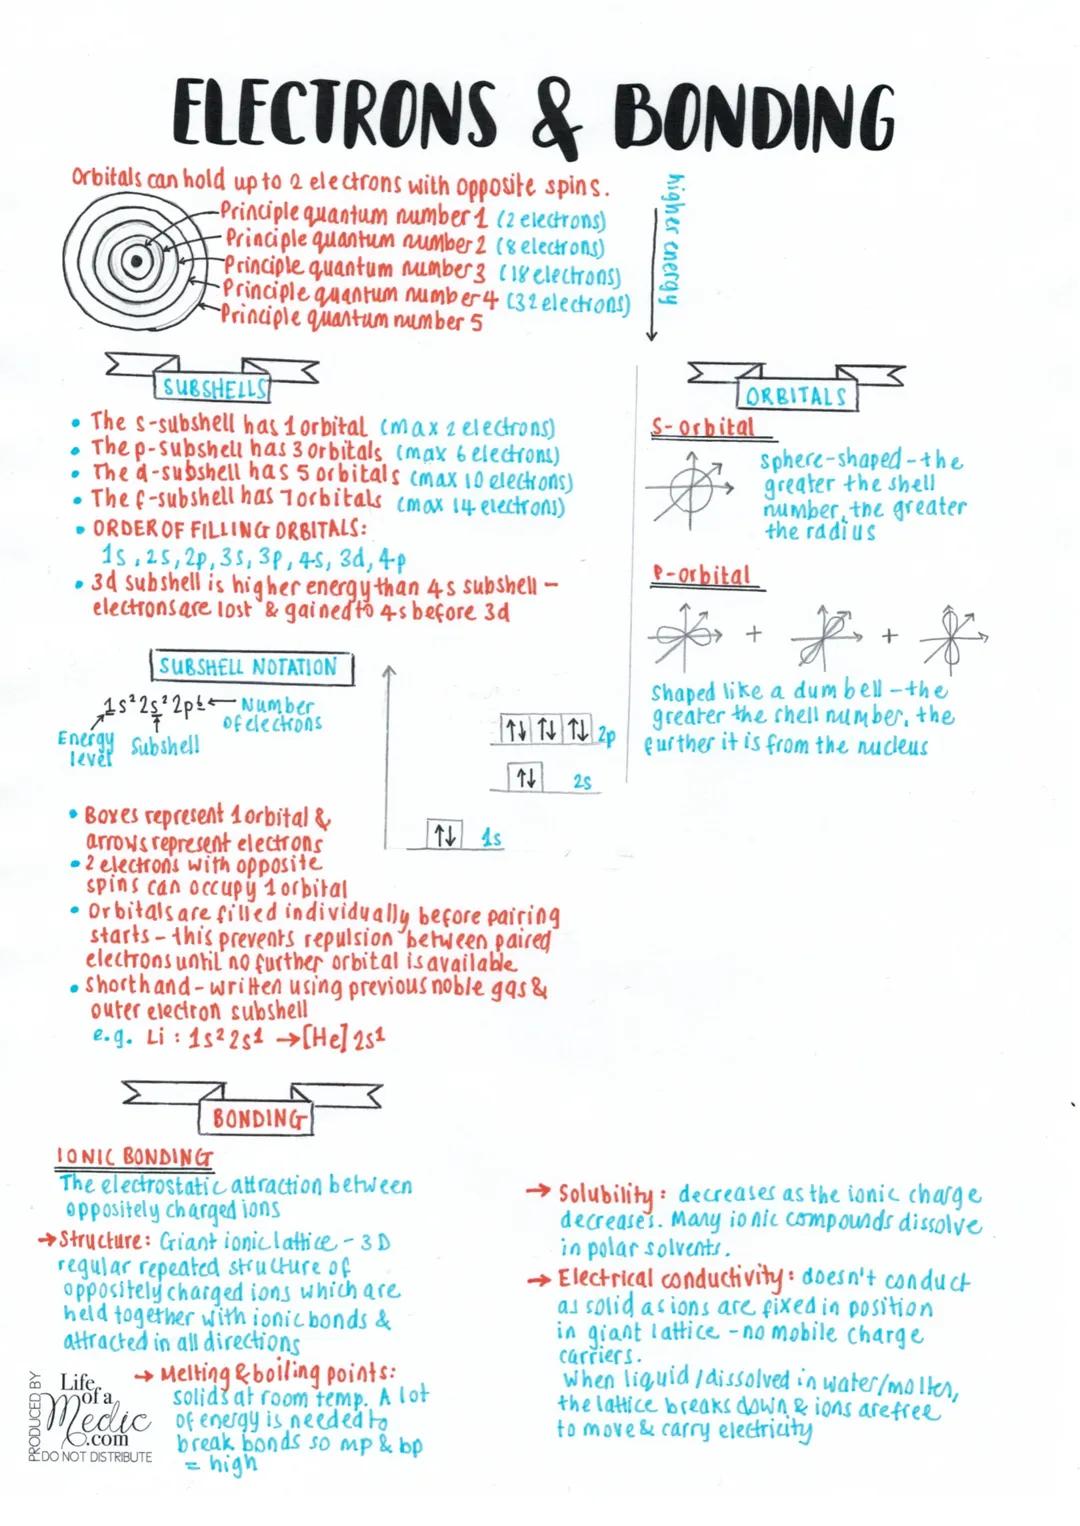 ELECTRONS & BONDING
Orbitals can hold up to 2 electrons with opposite spins.
Principle quantum number 1 (2 electrons)
Principle quantum number 2 (8 electrons)
Principle quantum number 3 (18 electrons)
Principle quantum number 4 (32 electrons)
Principle quantum number 5
higher energy
SUBSHELLS
• The s-subshell has 1 orbital (max 2 electrons)
• The p-subshell has 3 orbitals (max 6 electrons)
• The d-subshell has 5 orbitals (max 10 electrons)
• The f-subshell has 7 orbitals (max 14 electrons)
• ORDER OF FILLING ORBITALS:
1s, 2s, 2p, 3s, 3p, 4s, 3d, 4p
• 3d subshell is higher energy than 4s subshell –
electrons are lost & gained to 4s before 3d
ORBITALS
S-orbital
sphere-shaped - the
greater the shell
number, the greater
the radius
P-orbital
+ +
Shaped like a dumbell - the
greater the shell number, the
further it is from the nucleus
SUBSHELL NOTATION
1s² 2s² 2p⁶ ← Number
of electrons
Energy
level
Subshell
↑↓ ↑↓ ↑↓ 2p
↑↓ 2s
↑↓ 1s
• Boxes represent 1 orbital &
arrows represent electrons
• 2 electrons with opposite
spins can occupy 1 orbital
• Orbitals are filled individually before pairing
starts - this prevents repulsion between paired
electrons until no further orbital is available
• Shorthand - written using previous noble gas &
outer electron subshell
e.g. Li : 1s² 2s¹ → [He] 2s¹
BONDING
IONIC BONDING
The electrostatic attraction between
oppositely charged ions
→ Structure: Giant ionic lattice - 3D
regular repeated structure of
oppositely charged ions which are
held together with ionic bonds &
attracted in all directions
→ Melting & boiling points:
solids at room temp. A lot
of energy is needed to
break bonds so mp & bp
= high
→ Solubility: decreases as the ionic charge
decreases. Many ionic compounds dissolve
in polar solvents.
→ Electrical conductivity: doesn't conduct
as solid as ions are fixed in position
in giant lattice - no mobile charge
carriers.
When liquid / dissolved in water/molten,
the lattice breaks down & ions are free
to move & carry electricity
PRODUCED BY
Life
of a
Medic
.com
DO NOT DISTRIBUTE